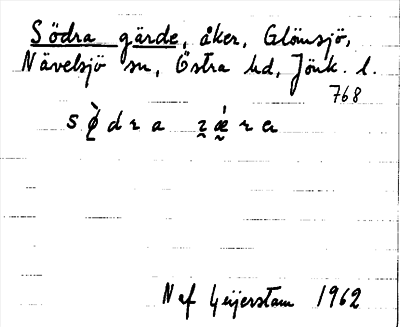 Södra gärde, åker, Glömsjö,
Nävelsjö sn, Östra hd, Jönk. l.
768
Nef Geijerstam 1962